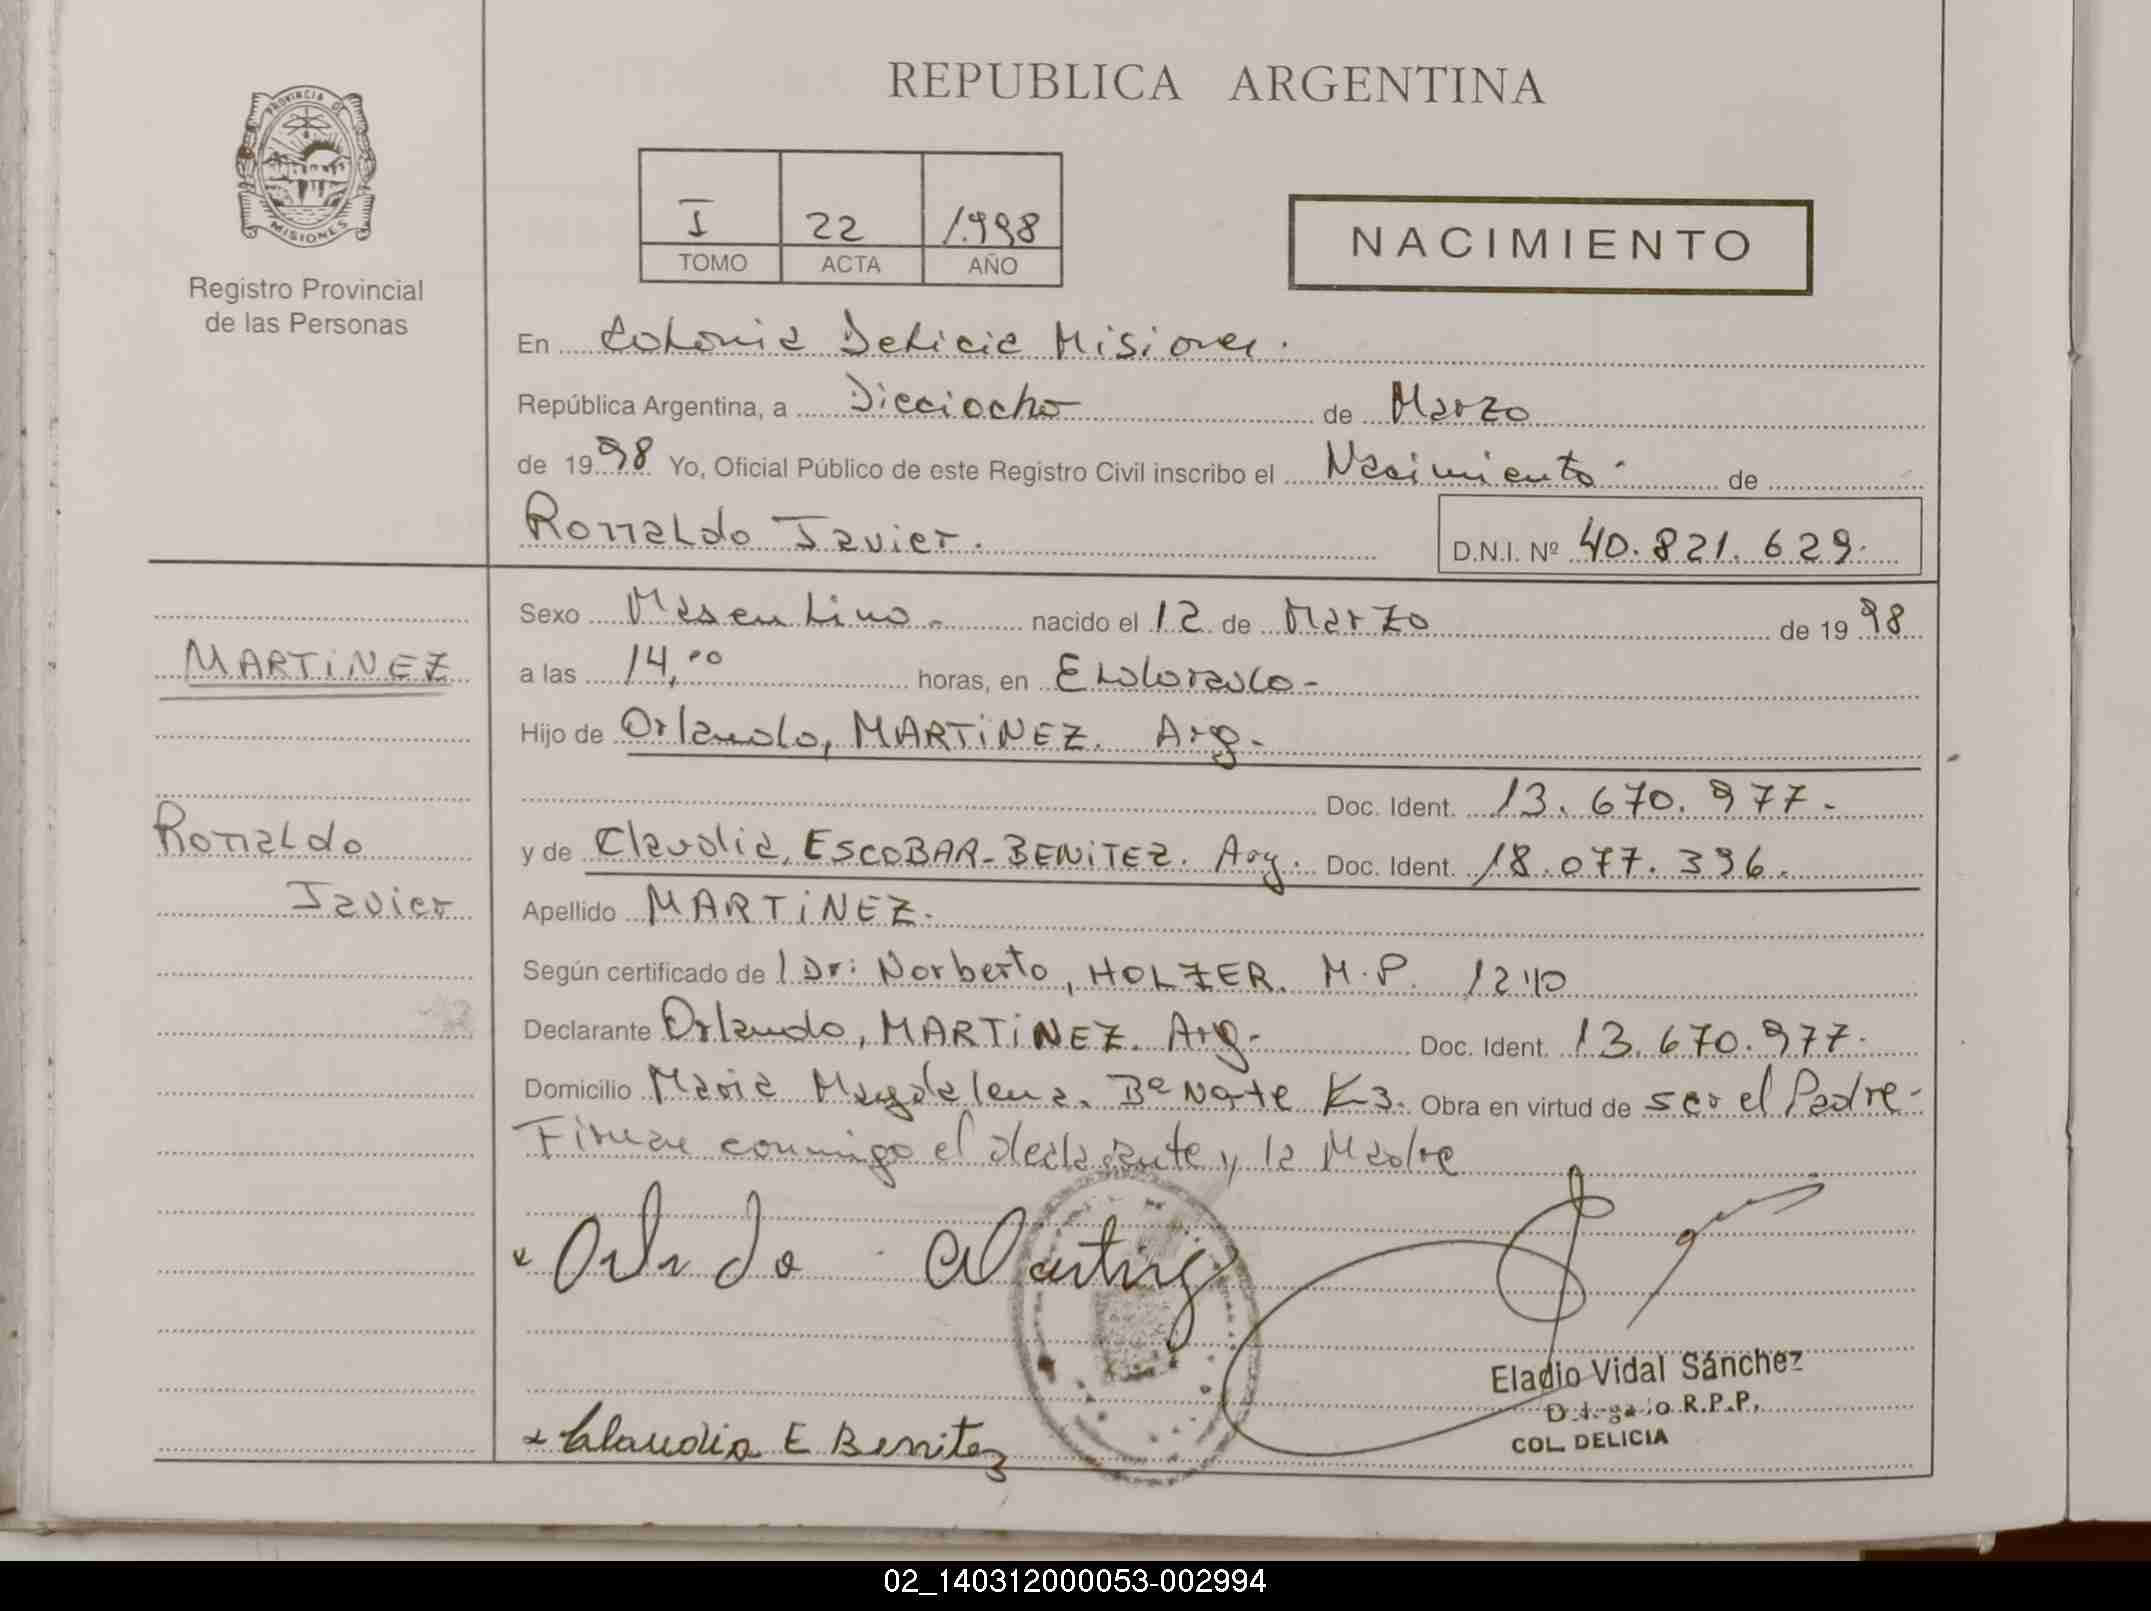 PROVINCIA DE
MISIONES
Registro Provincial
de las Personas
REPUBLICA ARGENTINA
I 22 1.998
TOMO ACTA AÑO
NACIMIENTO
En Colonia Delicia Misiones.
República Argentina, a Dieciocho de Marzo
de 1998 Yo, Oficial Público de este Registro Civil inscribo el Nacimiento de
Ronaldo Javier. D.N.I. Nº 40.821.629.
Sexo Masculino - nacido el 12 de Marzo de 1998
MARTiNEZ
a las 14,00 horas, en Eldorado -
Hijo de Orlando, MARTiNEZ. Arg.
Doc. Ident. 13.670.977.-
Ronaldo
y de Claudia, ESCOBAR-BENiTEZ. Arg. Doc. Ident. 18.077.396.
Javier
Apellido MARTiNEZ.
Según certificado de l Dr: Norberto, HOLZER. M.P. 1240
Declarante Orlando, MARTiNEZ. Arg. Doc. Ident. 13.670.977.
Domicilio Maria Magdalena. Bº Norte K3. Obra en virtud de ser el Padre-
Firman conmigo el declarante y la Madre
Orlando Martinez
Eladio Vidal Sánchez
Delegado R.P.P.
COL. DELICIA
Claudia E Benitez
02_140312000053-002994